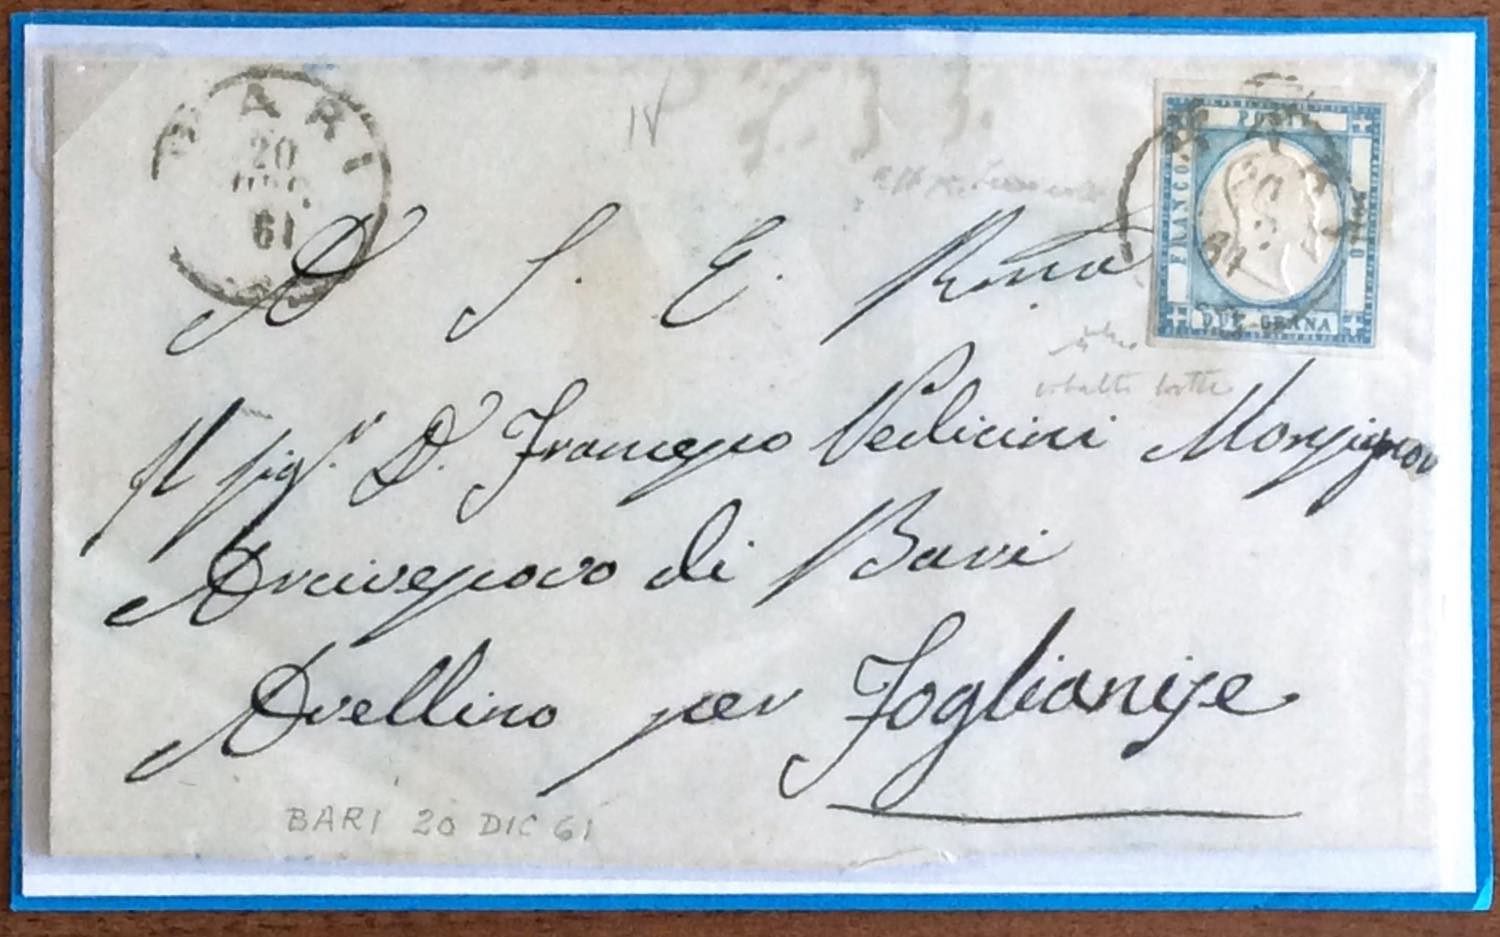 BARI
20
DIC.
61
IV
FRANCO
POSTE
BOLLO
DUE GRANA
BARI
20
61
A S. E. Rma
Il Sig.r D. Francesco Pedicini Monsignor
Arcivescovo di Bari
Avellino per Foglianise
BARI 20 DIC 61